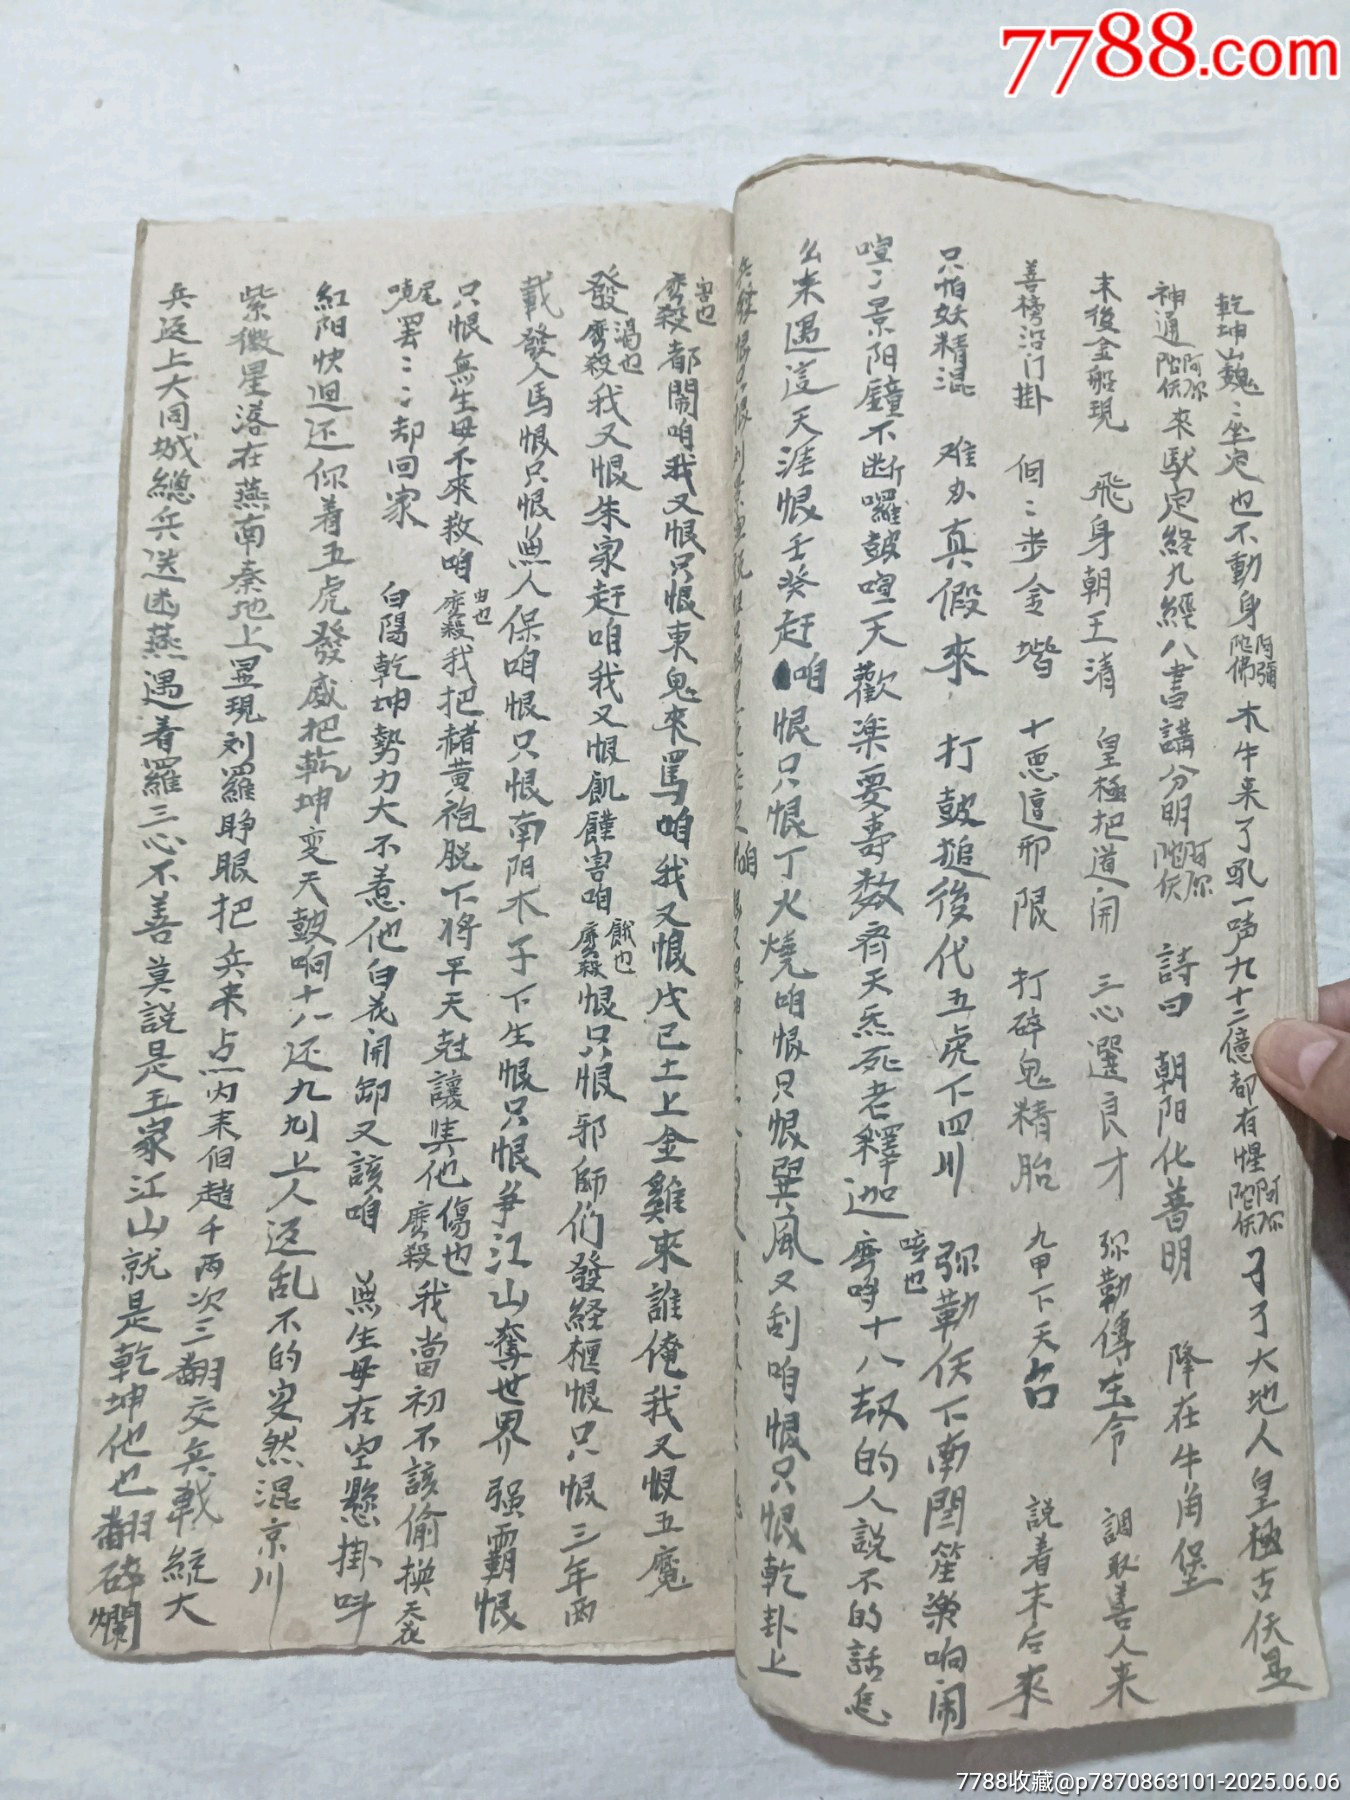 7788.com
乾坤山巍〻坐定也不動身阿彌陀佛木牛来了吼一声九十二億都有惺阿弥陀仸了了大地人皇極古仸显
神通阿弥陀仸來馱定経九經八書講分明阿弥陀仸 詩曰 朝阳化普明 降在牛角堡
末後金船現 飛身朝王清 皇極把道開 三心選良才 弥勒傳玄令 調取善人来
善榜沿门掛 個〻步金堦 十悪這邪限 打碎鬼精胎 九甲下天台 説着末后來
只怕妖精混 难办真假來 打鼓鎚後代五虎下四川 弥勒仸下南閻笙樂响闹
喧〻景阳鐘不断囉鼓喧天歡楽要壽数齐天炁死老釋迦 十八刼的人說不的話怎
么来遇這天涯恨壬癸赶咱恨只恨丁火燒咱恨只恨巽風又刮咱恨只恨乾卦上
殺害也都鬧咱我又恨只恨東鬼來罵咱我又恨戊己土上金雞來誰俺我又恨五魔
發殺渴也我又恨朱家赶咱我又恨飢饉害咱殺餓也恨只恨邪師们發経櫃恨只恨三年両
載發人馬恨只恨無人保咱恨只恨南阳木子下生恨只恨争江山奪世界强霸恨
只恨無生母不來救咱殺我把赭黄袍脱下将平天尅讓其他殺傷也我當初不該偷换天衣
罢〻却回家 白陽乾坤勢力大不惹他白花開卸又該咱 無生母在空懸掛呌
紅阳快迴还你着五虎發威把乾坤变天鼓响十八还九刼上人迋乱不的安然混京川
紫微星落在燕南秦地上显現刘羅睁眼把兵来点内耒佰趙千两次三翻交兵戰統大
兵迋上大同城總兵送燕遇着羅三心不善莫説是王家江山就是乾坤他也翻碎爛
7788收藏@p7870863101-2025.06.06